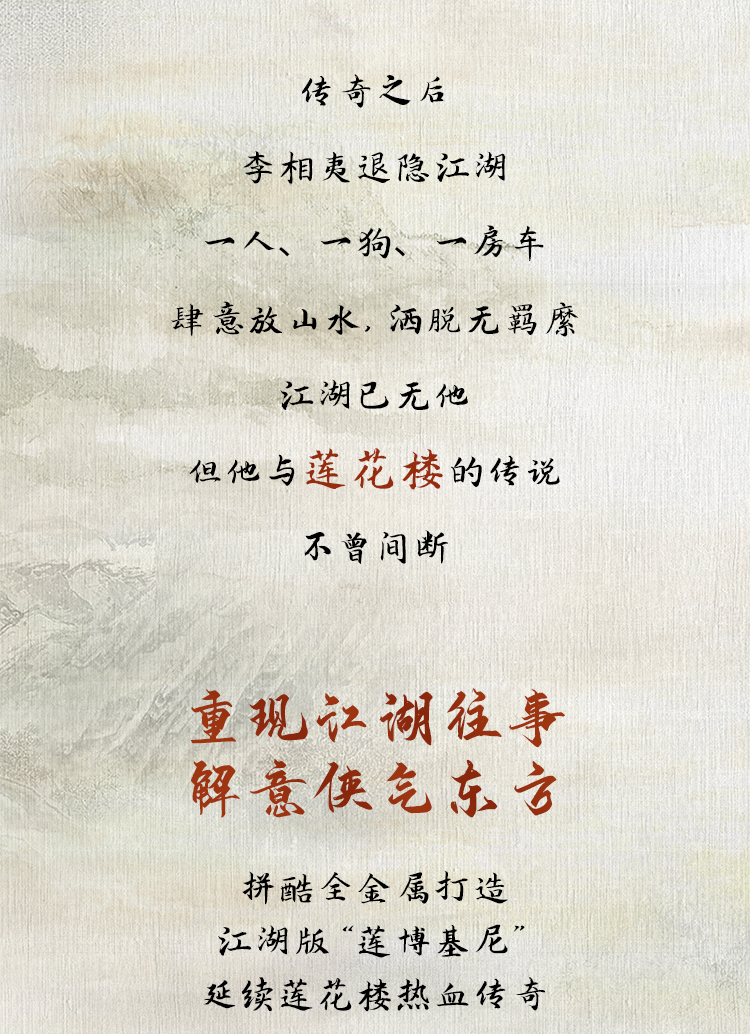 传奇之后
李相夷退隐江湖
一人、一狗、一房车
肆意放山水,洒脱无羁縻
江湖已无他
但他与莲花楼的传说
不曾间断
重现江湖往事
解意侠气东方
拼酷全金属打造
江湖版“莲博基尼”
延续莲花楼热血传奇